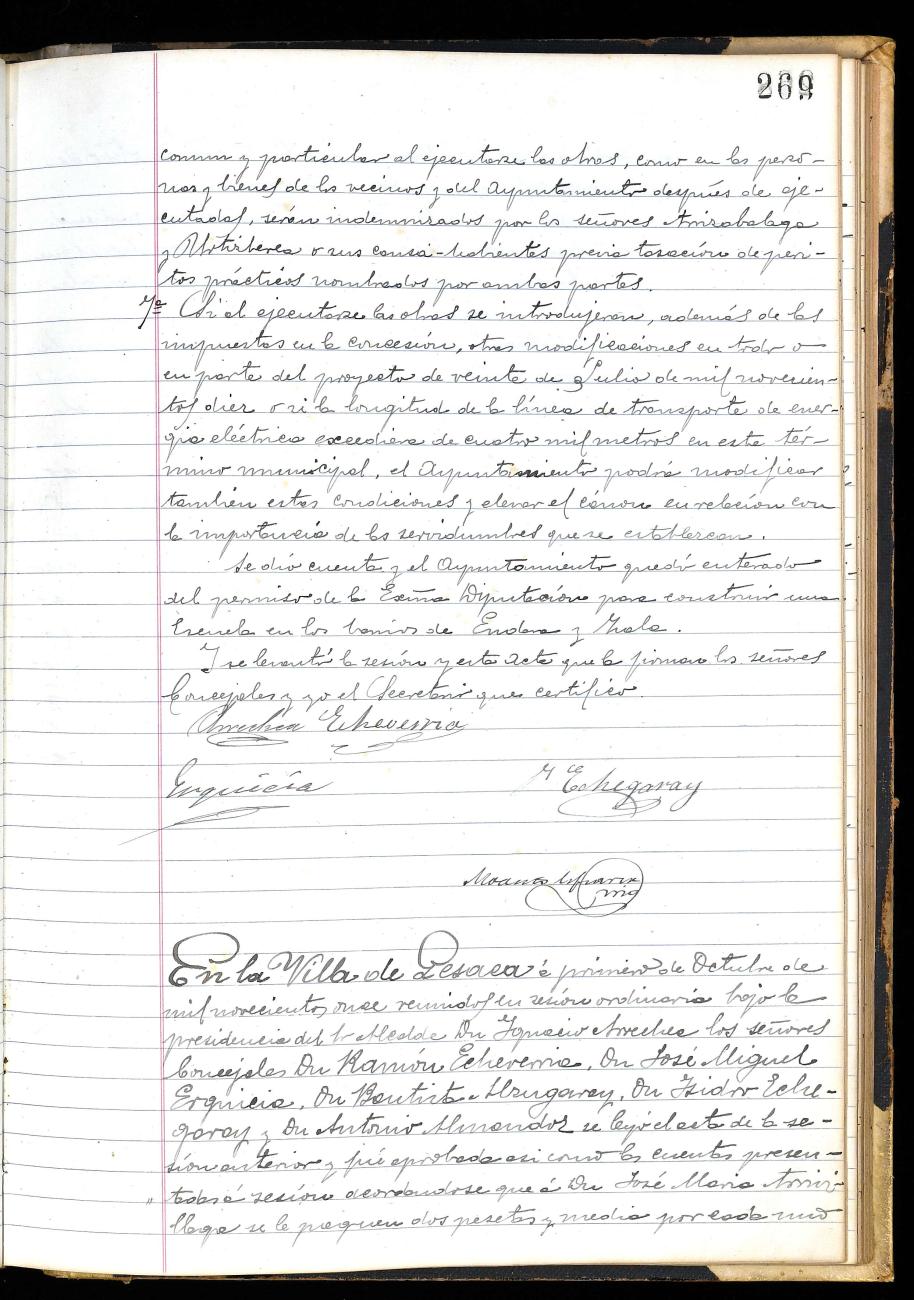 269
comun y particular al ejecutarse las obras, como en las perso-
nas y bienes de los vecinos y del Ayuntamiento después de eje-
cutadas, serán indemnizados por los señores Arrizabalaga
y o sus causa-habientes previa tasación de peri-
tos prácticos nombrados por ambas partes.
7ª Si al ejecutarse las obras se introdujeran, además de las
impuestas en la concesión, otras modificaciones en todo o
en parte del proyecto de veinte de Julio de mil novecien-
tos diez o si la longitud de la línea de transporte de ener-
gia eléctrica excediera de cuatro mil metros en este tér-
mino municipal, el Ayuntamiento podrá modificar
también estas condiciones y elevar el cánon en relación con
la importancia de las servidumbres que se establezcan.
Se dió cuenta y el Ayuntamiento quedó enterado
del permiso de la Exma Diputación para construir una
Escuela en los barrios de Endara y Zala.
Y se levantó la sesión y esta acta que la firman los señores
Concejales y yo el Secretario que certifico.
Arrechea Echeverria
Erquicia
Echegaray
Marcos
En la Villa de Lesaca á primero de Octubre de
mil novecientos once reunidos en sesión ordinaria bajo la
presidencia del Sr Alcalde Dn Ignacio Arrechea los señores
Concejales Dn Ramón Echeverria, Dn José Miguel
Erquicia, Dn Bautista Alzugaray, Dn Isidro Eche-
garay y Dn Antonio Almandoz se leyó el acta de la se-
sión anterior y fué aprobada asi como las cuentas presen-
tadas á sesión acordandose que á Dn José Maria Arrizi-
llaga se le paguen dos pesetas y media por cada uno